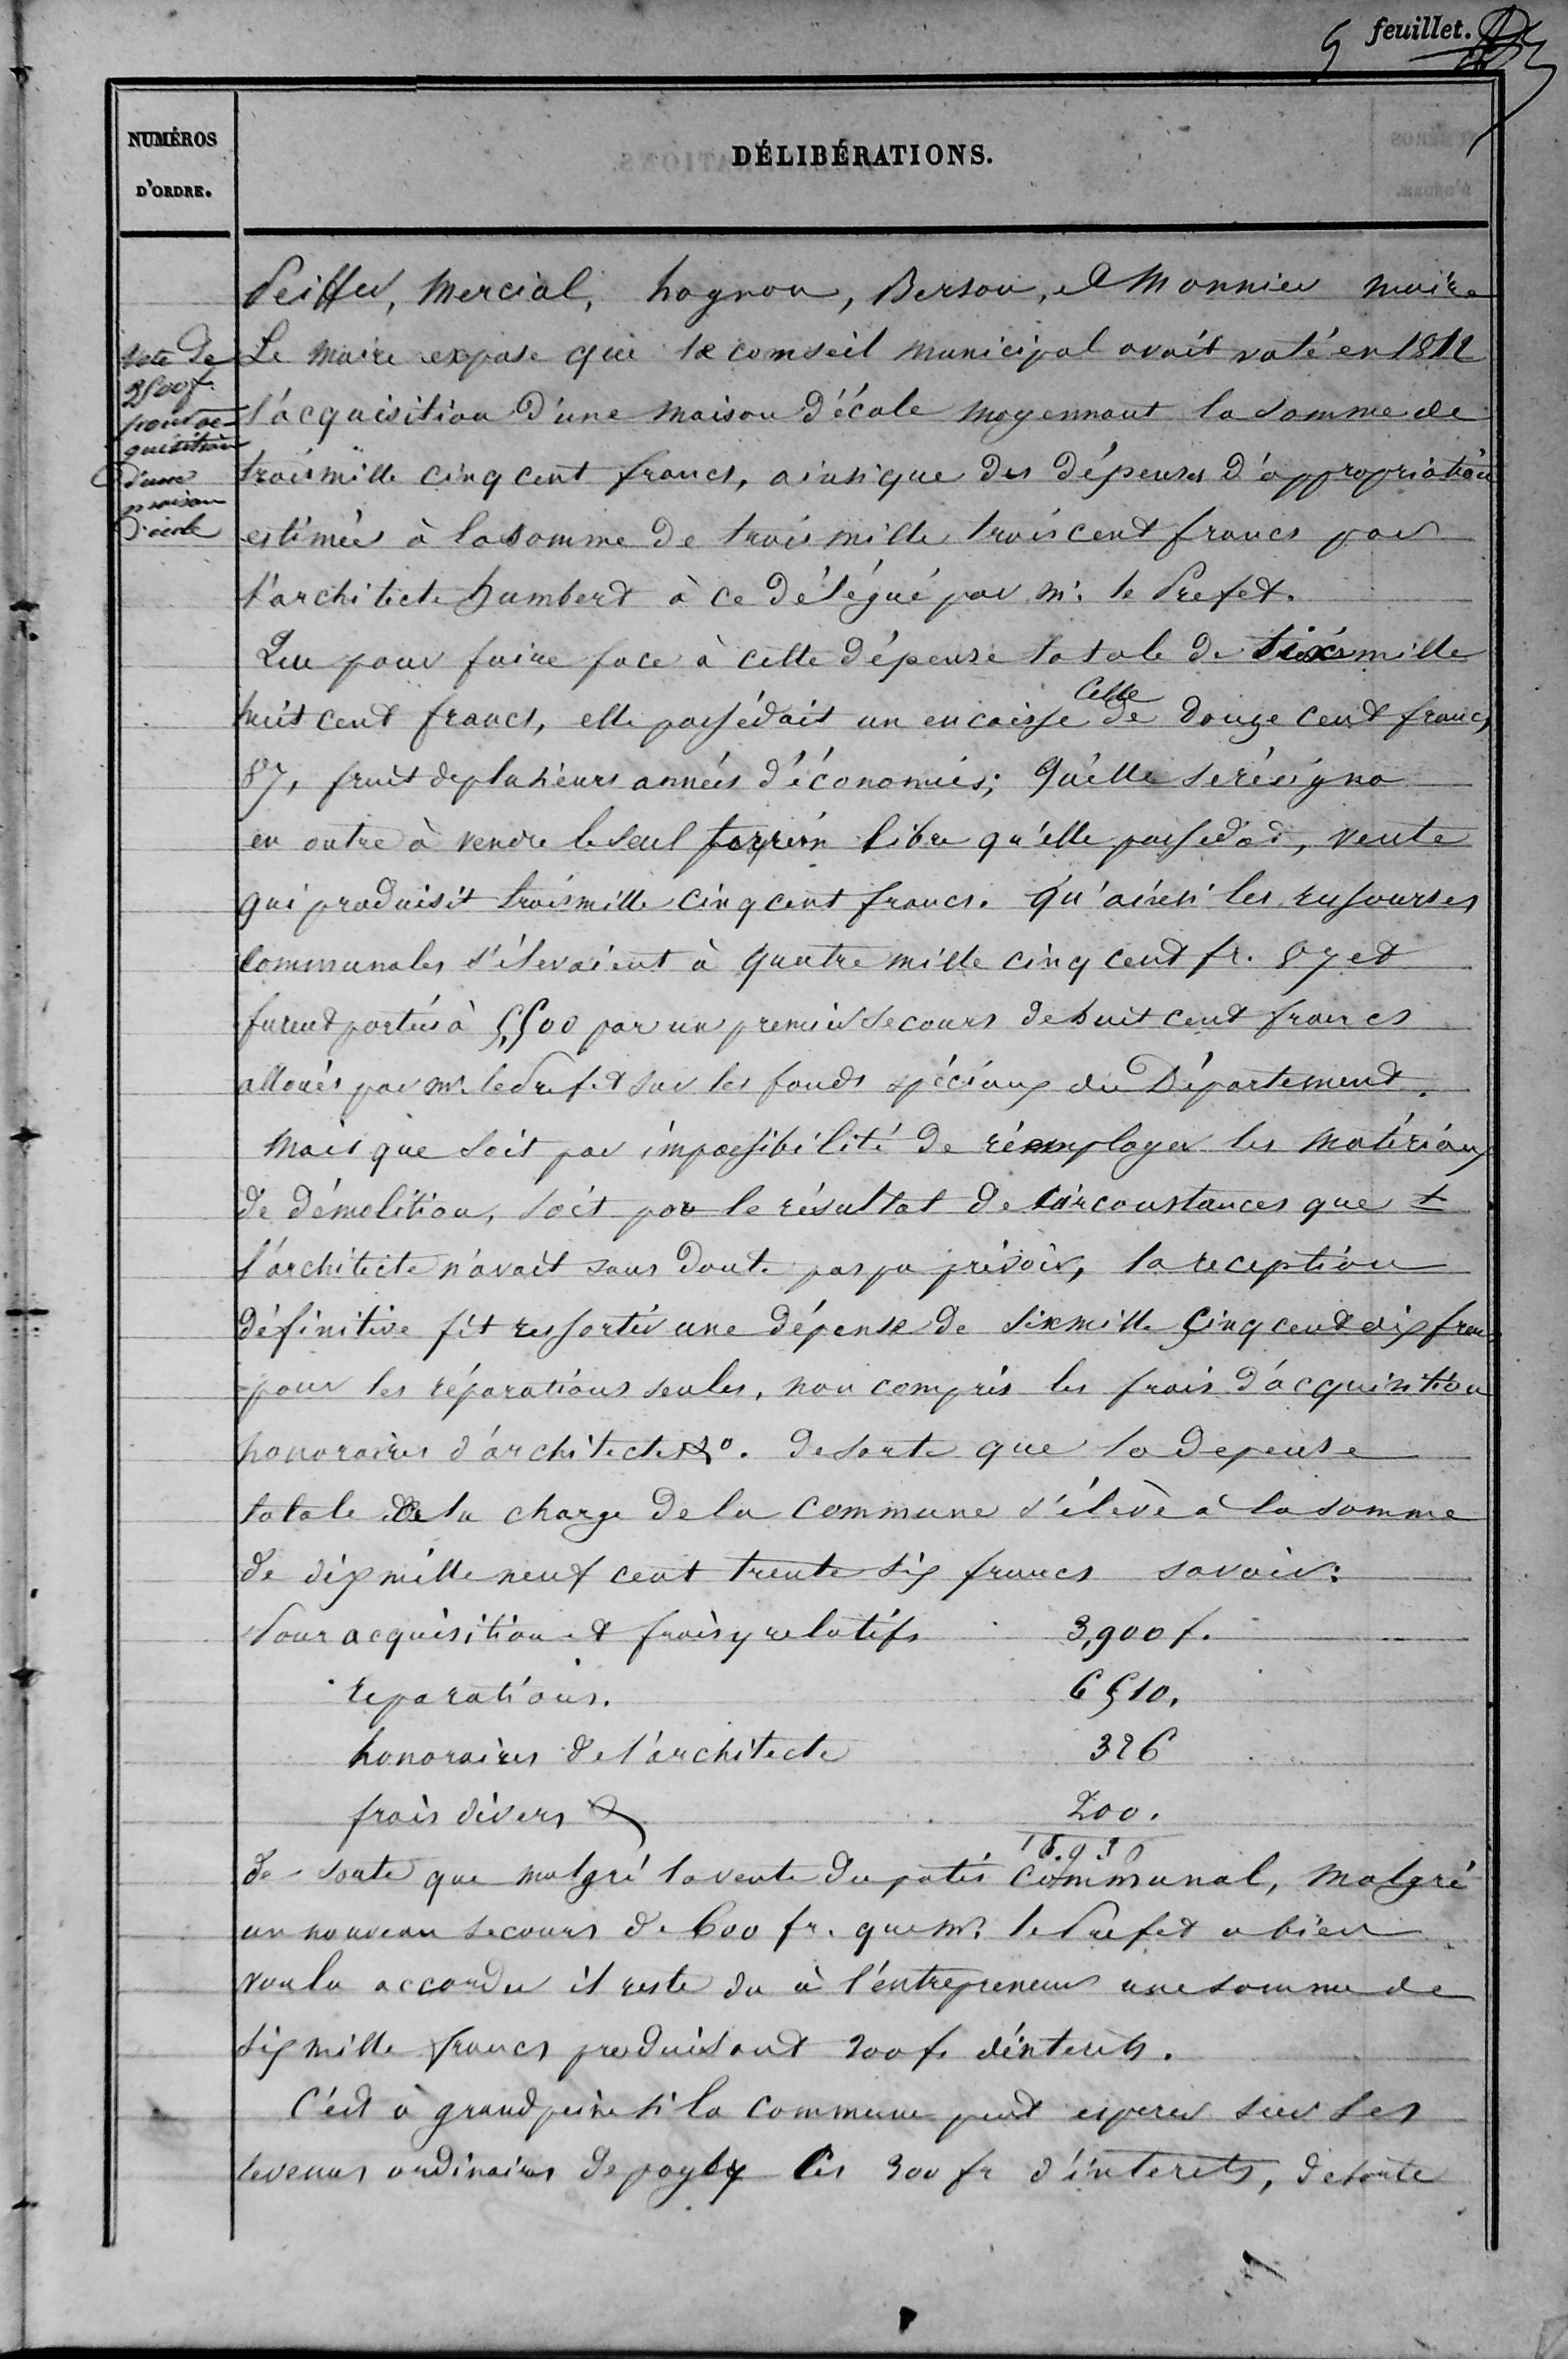 5 feuillet.
NUMÉROS
D'ORDRE.
DÉLIBÉRATIONS.
Peiffer, Mercial, hognon, Berson, et Monnier maire
Vote de
2500 f.
pour ac-
quisition
d'une
maison
d'école
Le maire expose que le comseil municipal avait voté en 1812
l'acquisition d'une maison d'école moyennant la somme de
troismille cinq cent francs, ainsique des dépenses d'appropriation
estimées à la somme de troismille troiscent francs par
l'architecte humbert à ce délégué par mr. le Prefet.
Que pour faire face à cette dépense totale de sixmille
huit cent francs, elle possédait un encaisse celle de douze cent francs
87, fruit deplusieurs années d'économies; Qu'elle serésigna
en outre à vendre le seul terrein libre qu'elle possedait, vente
qui produisit troismille cinqcent francs. Qu'ainsi les ressourses
communales s'élevaient à quatre mille cinq cent fr. 87 et
furent portées à 5,500 par un premier secours dehuit cent francs
alloués par mr. le Prefet sur les fonds spéciaux du Département.
Mais que soit par impossibilité de réemployer les matériaux
de démolition, soit par le résultat de circonstances que
l'architecte n'avait sans doute paspu prévoir, la reception
définitive fit ressortir une dépense de sixmille cinqcent dix francs
pour les réparations seules, non compris les frais d'acquisition
honoraires d'architecte &o. desorte que la depense
totale de la charge de la commune s'élève à la somme
de dixmille neuf cent trente six francs savoir:
Pour acquisition & frais y relatifs 3,900 f.
reparations. 6510.
honoraires de l'architecte 326
frais divers & 200.
10.936
de sorte que malgré lavente du patis communal, malgré
un nouveau secours de 600 fr. que mr. le Prefet a bien
voulu accorder il reste du à l'entrepreneur unesomme de
six mille francs produisant 300 f. d'interets.
C'est à grandpeine si la commune peut esperer sur ses
revenus ordinaires de payer les 300 fr d'interets, desorte